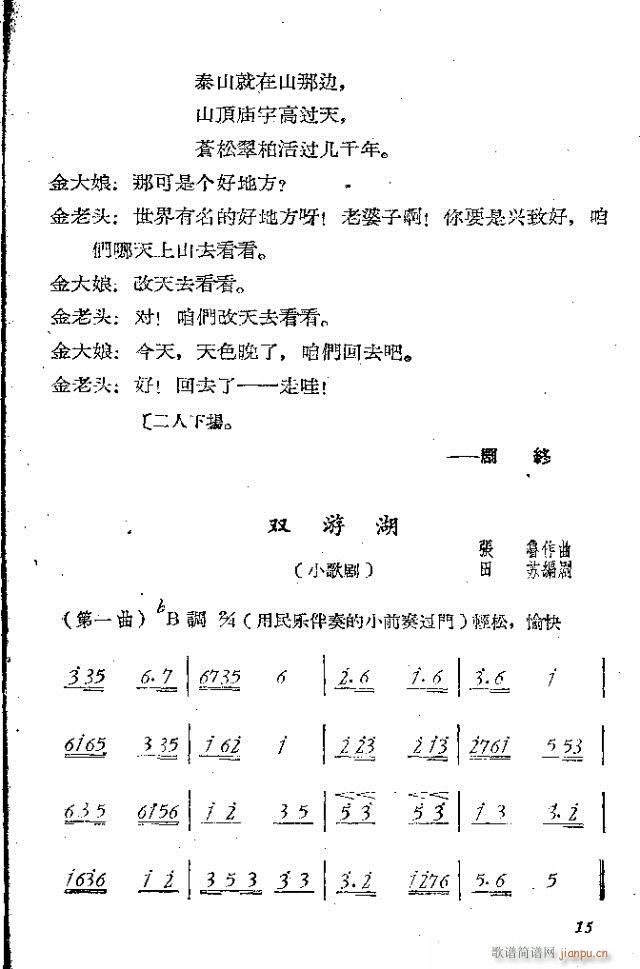 泰山就在山那边，
山頂庙宇高过天，
蒼松翠柏活过几千年。
金大娘：那可是个好地方？
金老头：世界有名的好地方呀！老婆子啊！你要是兴致好，咱
們哪天上山去看看。
金大娘：改天去看看。
金老头：对！咱們改天去看看。
金大娘：今天，天色晚了，咱們回去吧。
金老头：好！回去了——走哇！
〔二人下場。
——劇 終
双 游 湖
張 魯作曲
（小歌剧）
田 苏編剧
（第一曲）♭B調 2/4（用民乐伴奏的小前奏过門）輕松，愉快
3 35 6·7 | 6735 6 | 2·6 1·6 | 3·6 1 |
6165 3 35 | 1 62 1 | 2 23 2 13 | 2761 5 53 |
635 6156 | 1 2 3 5 | 5 3 5 3 | 1 3 3·2 |
1636 1 2 | 3 5 3 3 3 | 3·2 1276 | 5·6 5 ‖
15
歌谱简谱网 jianpu.cn